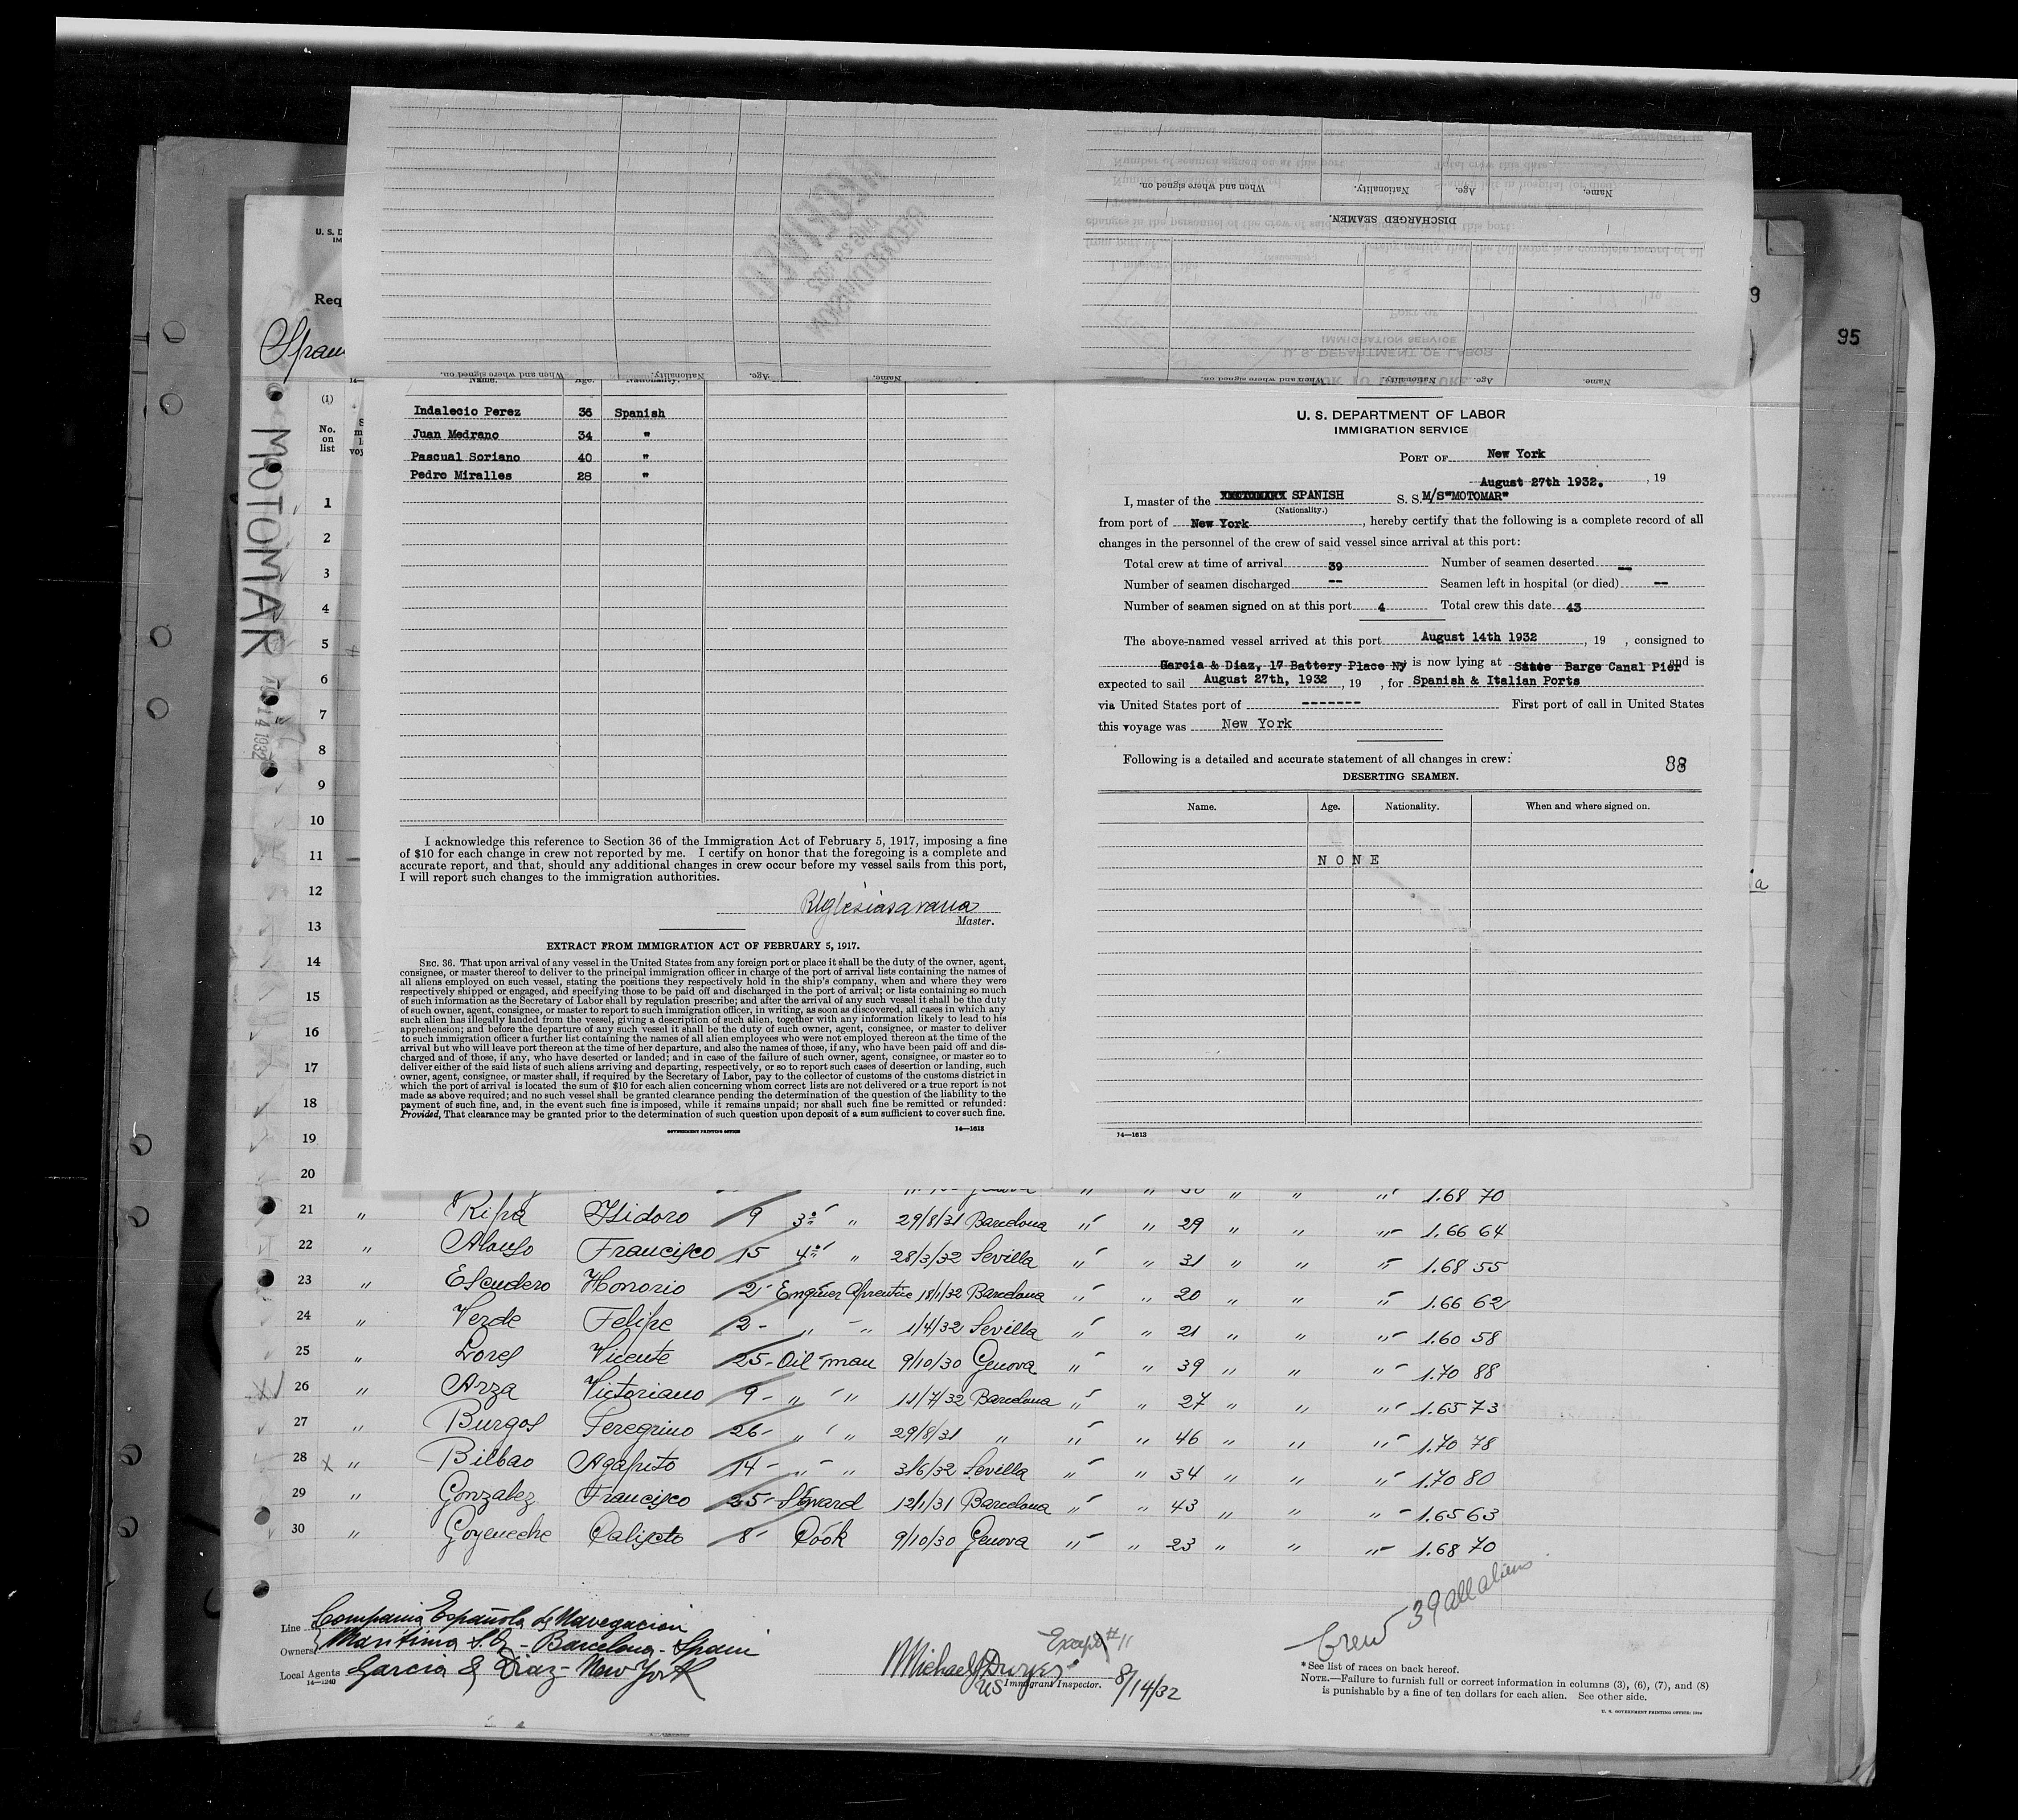 95
9
U. S. D
IM
Req
Span
MOTOMAR
AUG 14 1932
(1)
No.
on
list
DISCHARGED SEAMEN.
Name. Age. Nationality. When and where signed on.
Name. Age. Nationality.
Indalecio Perez 36 Spanish
Juan Medrano 34 "
Pascual Soriano 40 "
Pedro Miralles 28 "
I acknowledge this reference to Section 36 of the Immigration Act of February 5, 1917, imposing a fine
of $10 for each change in crew not reported by me. I certify on honor that the foregoing is a complete and
accurate report, and that, should any additional changes in crew occur before my vessel sails from this port,
I will report such changes to the immigration authorities.
Master.
EXTRACT FROM IMMIGRATION ACT OF FEBRUARY 5, 1917.
SEC. 36. That upon arrival of any vessel in the United States from any foreign port or place it shall be the duty of the owner, agent,
consignee, or master thereof to deliver to the principal immigration officer in charge of the port of arrival lists containing the names of
all aliens employed on such vessel, stating the positions they respectively hold in the ship's company, when and where they were
respectively shipped or engaged, and specifying those to be paid off and discharged in the port of arrival; or lists containing so much
of such information as the Secretary of Labor shall by regulation prescribe; and after the arrival of any such vessel it shall be the duty
of such owner, agent, consignee, or master to report to such immigration officer, in writing, as soon as discovered, all cases in which any
such alien has illegally landed from the vessel, giving a description of such alien, together with any information likely to lead to his
apprehension; and before the departure of any such vessel it shall be the duty of such owner, agent, consignee, or master to deliver
to such immigration officer a further list containing the names of all alien employees who were not employed thereon at the time of the
arrival but who will leave port thereon at the time of her departure, and also the names of those, if any, who have been paid off and dis-
charged and of those, if any, who have deserted or landed; and in case of the failure of such owner, agent, consignee, or master so to
deliver either of the said lists of such aliens arriving and departing, respectively, or so to report such cases of desertion or landing, such
owner, agent, consignee, or master shall, if required by the Secretary of Labor, pay to the collector of customs of the customs district in
which the port of arrival is located the sum of $10 for each alien concerning whom correct lists are not delivered or a true report is not
made as above required; and no such vessel shall be granted clearance pending the determination of the question of the liability to the
payment of such fine, and, in the event such fine is imposed, while it remains unpaid; nor shall such fine be remitted or refunded:
Provided, That clearance may be granted prior to the determination of such question upon deposit of a sum sufficient to cover such fine.
GOVERNMENT PRINTING OFFICE 14—1613
U. S. DEPARTMENT OF LABOR
IMMIGRATION SERVICE
PORT OF New York
August 27th 1932. , 19
I, master of the SPANISH S. S. M/S"MOTOMAR"
(Nationality.)
from port of New York, hereby certify that the following is a complete record of all
changes in the personnel of the crew of said vessel since arrival at this port:
Total crew at time of arrival 39 Number of seamen deserted --
Number of seamen discharged -- Seamen left in hospital (or died) --
Number of seamen signed on at this port 4 Total crew this date 43
The above-named vessel arrived at this port August 14th 1932, 19 , consigned to
Garcia & Diaz, 17 Battery Place Ny is now lying at State Barge Canal Pier and is
expected to sail August 27th, 1932, 19 , for Spanish & Italian Ports
via United States port of ------- First port of call in United States
this voyage was New York
Following is a detailed and accurate statement of all changes in crew:
88
DESERTING SEAMEN.
Name. Age. Nationality. When and where signed on.
NONE
14—1613
1
2
3
4
5
6
7
8
9
10
11
12
13
14
15
16
17
18
19
20 1.68 70
21 " Ripa Isidoro 9 3º " 29/8/31 Barcelona " " 29 " " " 1.66 64
22 " Alonso Francisco 15 4º " 28/3/32 Sevilla " " 31 " " " 1.68 55
23 " Escudero Honorio 2- Engineer Aprentice 18/1/32 Barcelona " " 20 " " " 1.66 62
24 " Verde Felipe 2- " " 1/4/32 Sevilla " " 21 " " " 1.60 58
25 " Lores Vicente 25- Oil-man 9/10/30 Genova " " 39 " " " 1.70 88
26 " Arza Victoriano 9- " " 11/7/32 Barcelona " " 27 " " " 1.65 73
27 " Burgos Peregrino 26- " " 29/8/31 " " " 46 " " " 1.70 78
28 x " Bilbao Agapito 14- " " 3/6/32 Sevilla " " 34 " " " 1.70 80
29 " Gonzalez Francisco 25- Steward 12/1/31 Barcelona " " 43 " " " 1.65 63
30 " Goyeneche Calixto 8- Cook 9/10/30 Genova " " 23 " " " 1.68 70
Crew 39 all aliens
Line Compania Española de Navegacion
Owners Maritima S.A - Barcelona - Spain
Local Agents Garcia & Diaz - New York
14—1240
Except #11
Michael J Dwyer
US Immigrant Inspector. 8/14/32
* See list of races on back hereof.
NOTE.—Failure to furnish full or correct information in columns (3), (6), (7), and (8)
is punishable by a fine of ten dollars for each alien. See other side.
U. S. GOVERNMENT PRINTING OFFICE: 1930